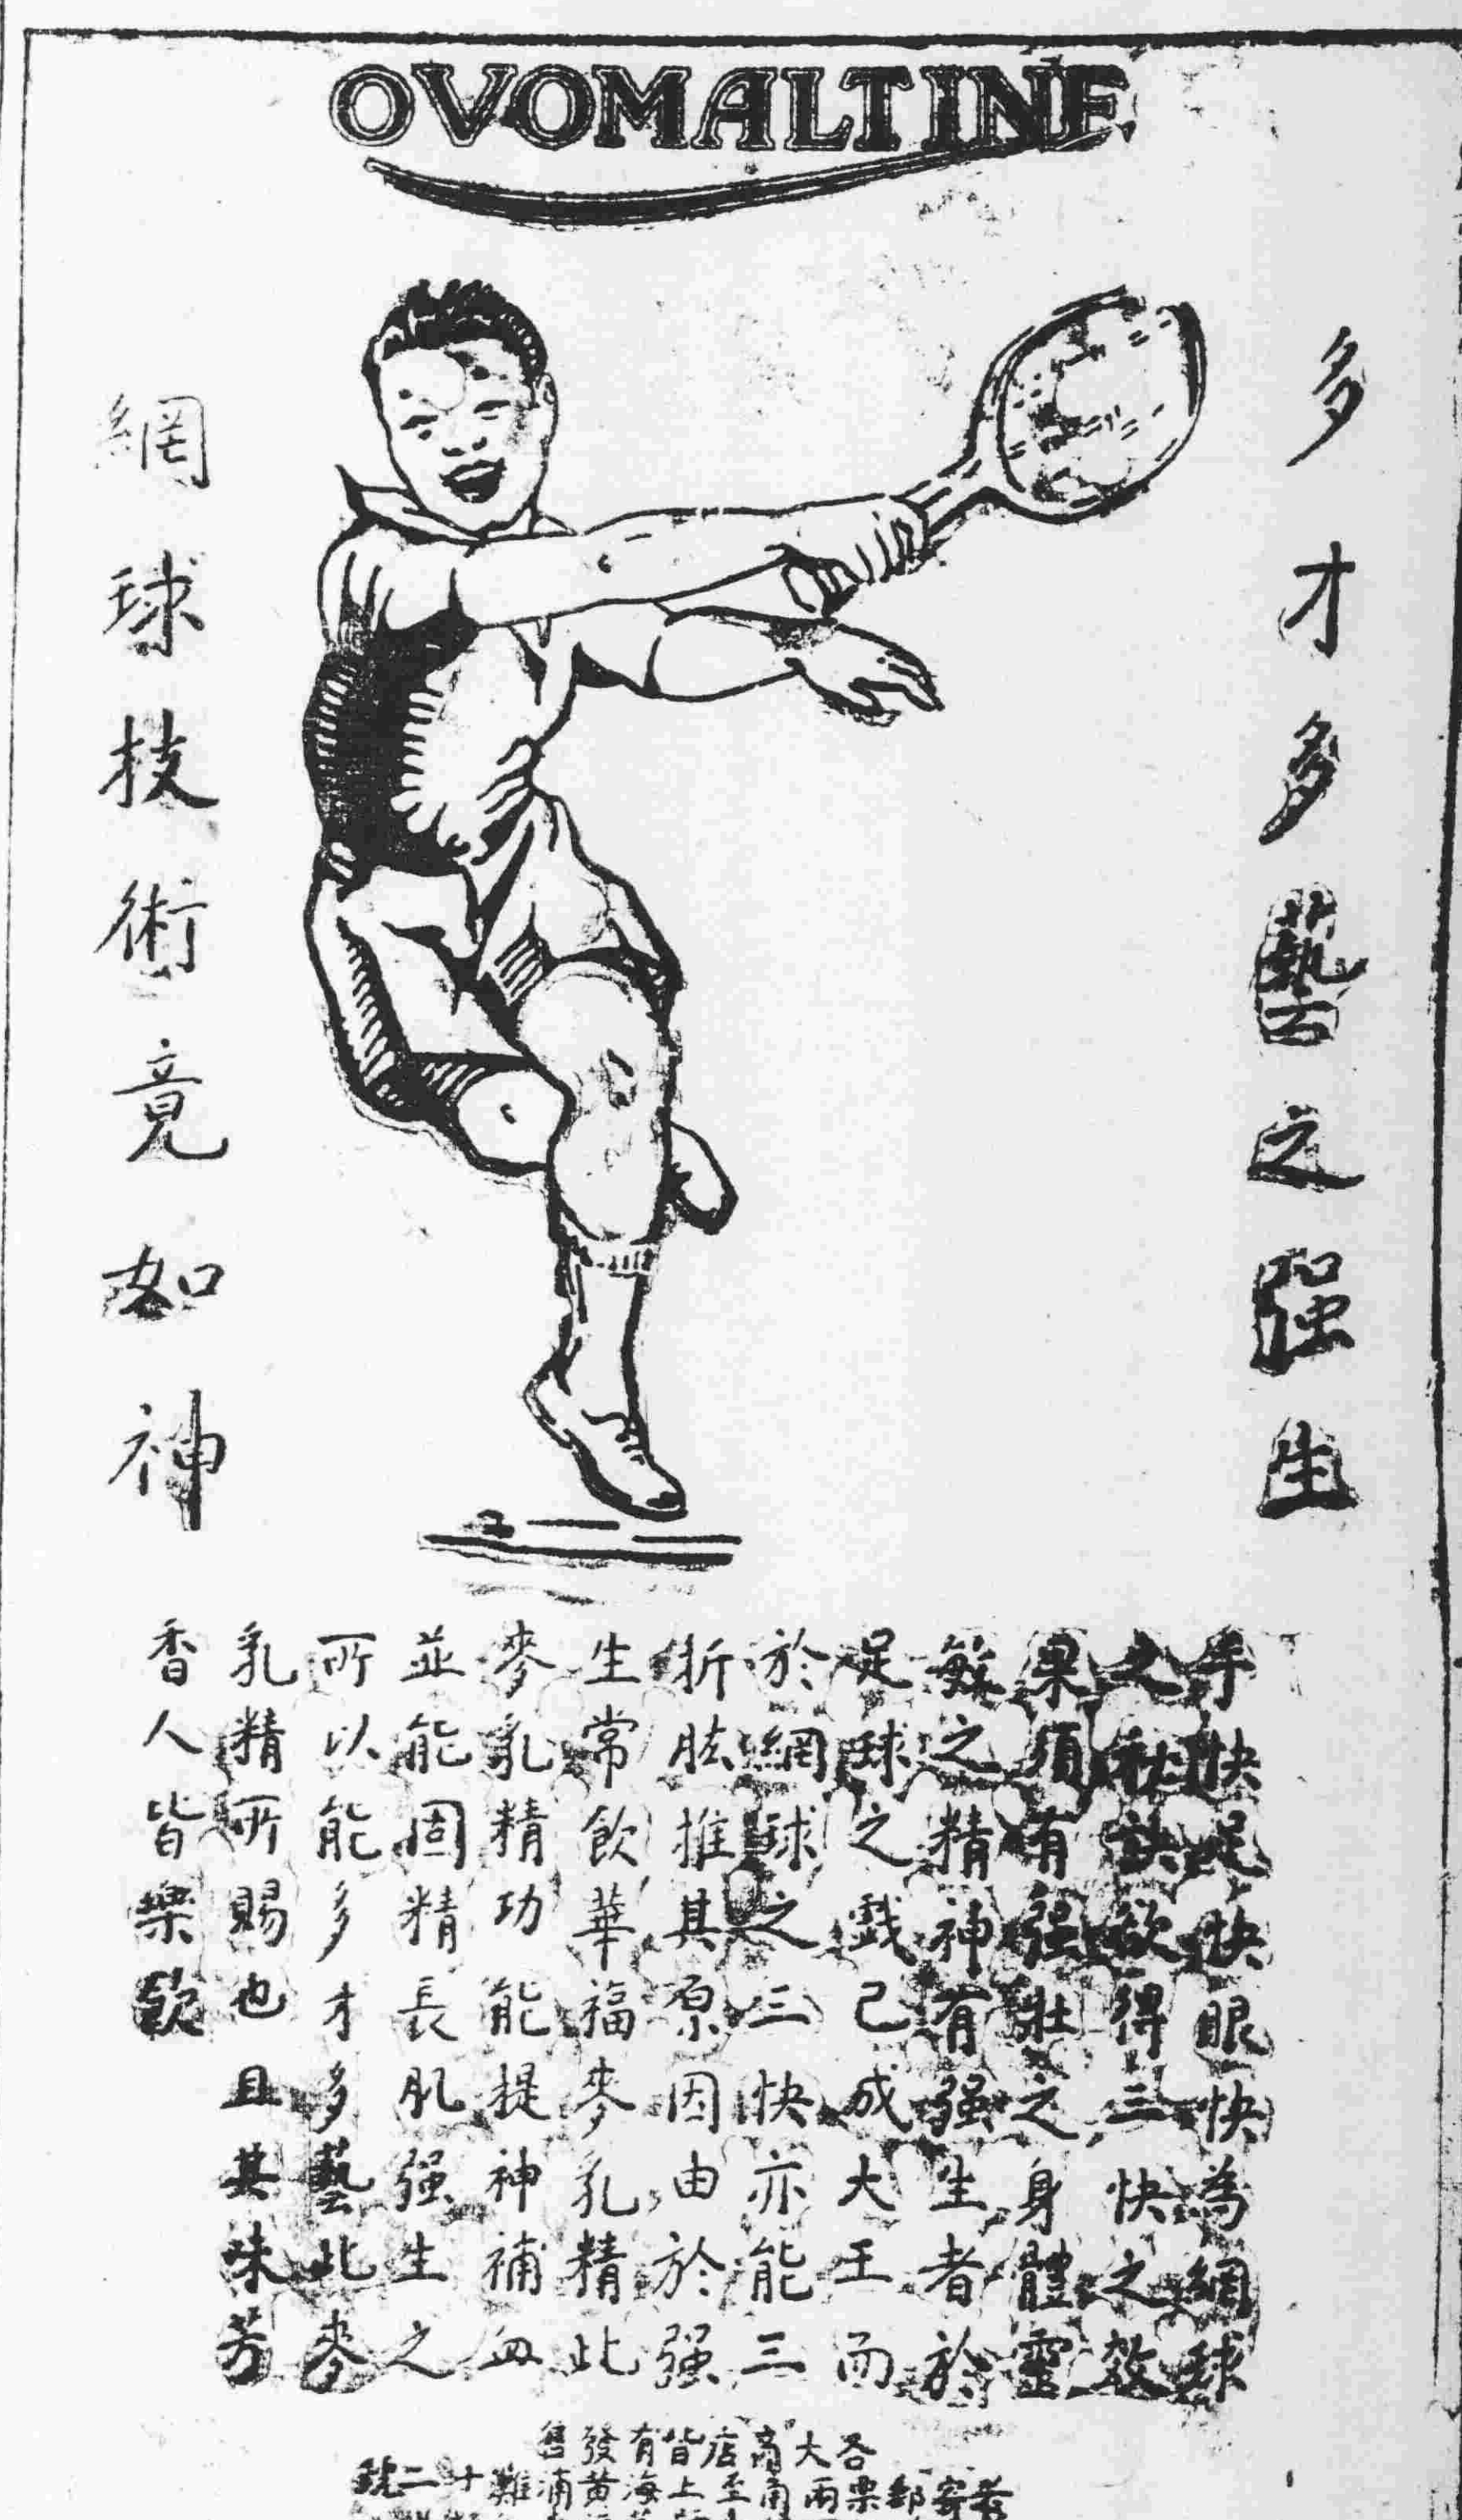 OVOMALTINE
多才多藝之强生
網球技術竟如神
手快足快眼快為網球
之秘訣欲得三快之效
果須有强壯之身體靈
敏之精神有强生者於
足球之戲已成大王而
於網球之三快亦能三
折肱推其原因由於强
生常飲華福麥乳精此
麥乳精功能提神補血
並能固精長肌强生之
所以能多才多藝此麥
乳精所賜也且其味芳
香人皆樂飲
各大商店皆有發售
若寄郵票兩角至上海黃浦灘十二號